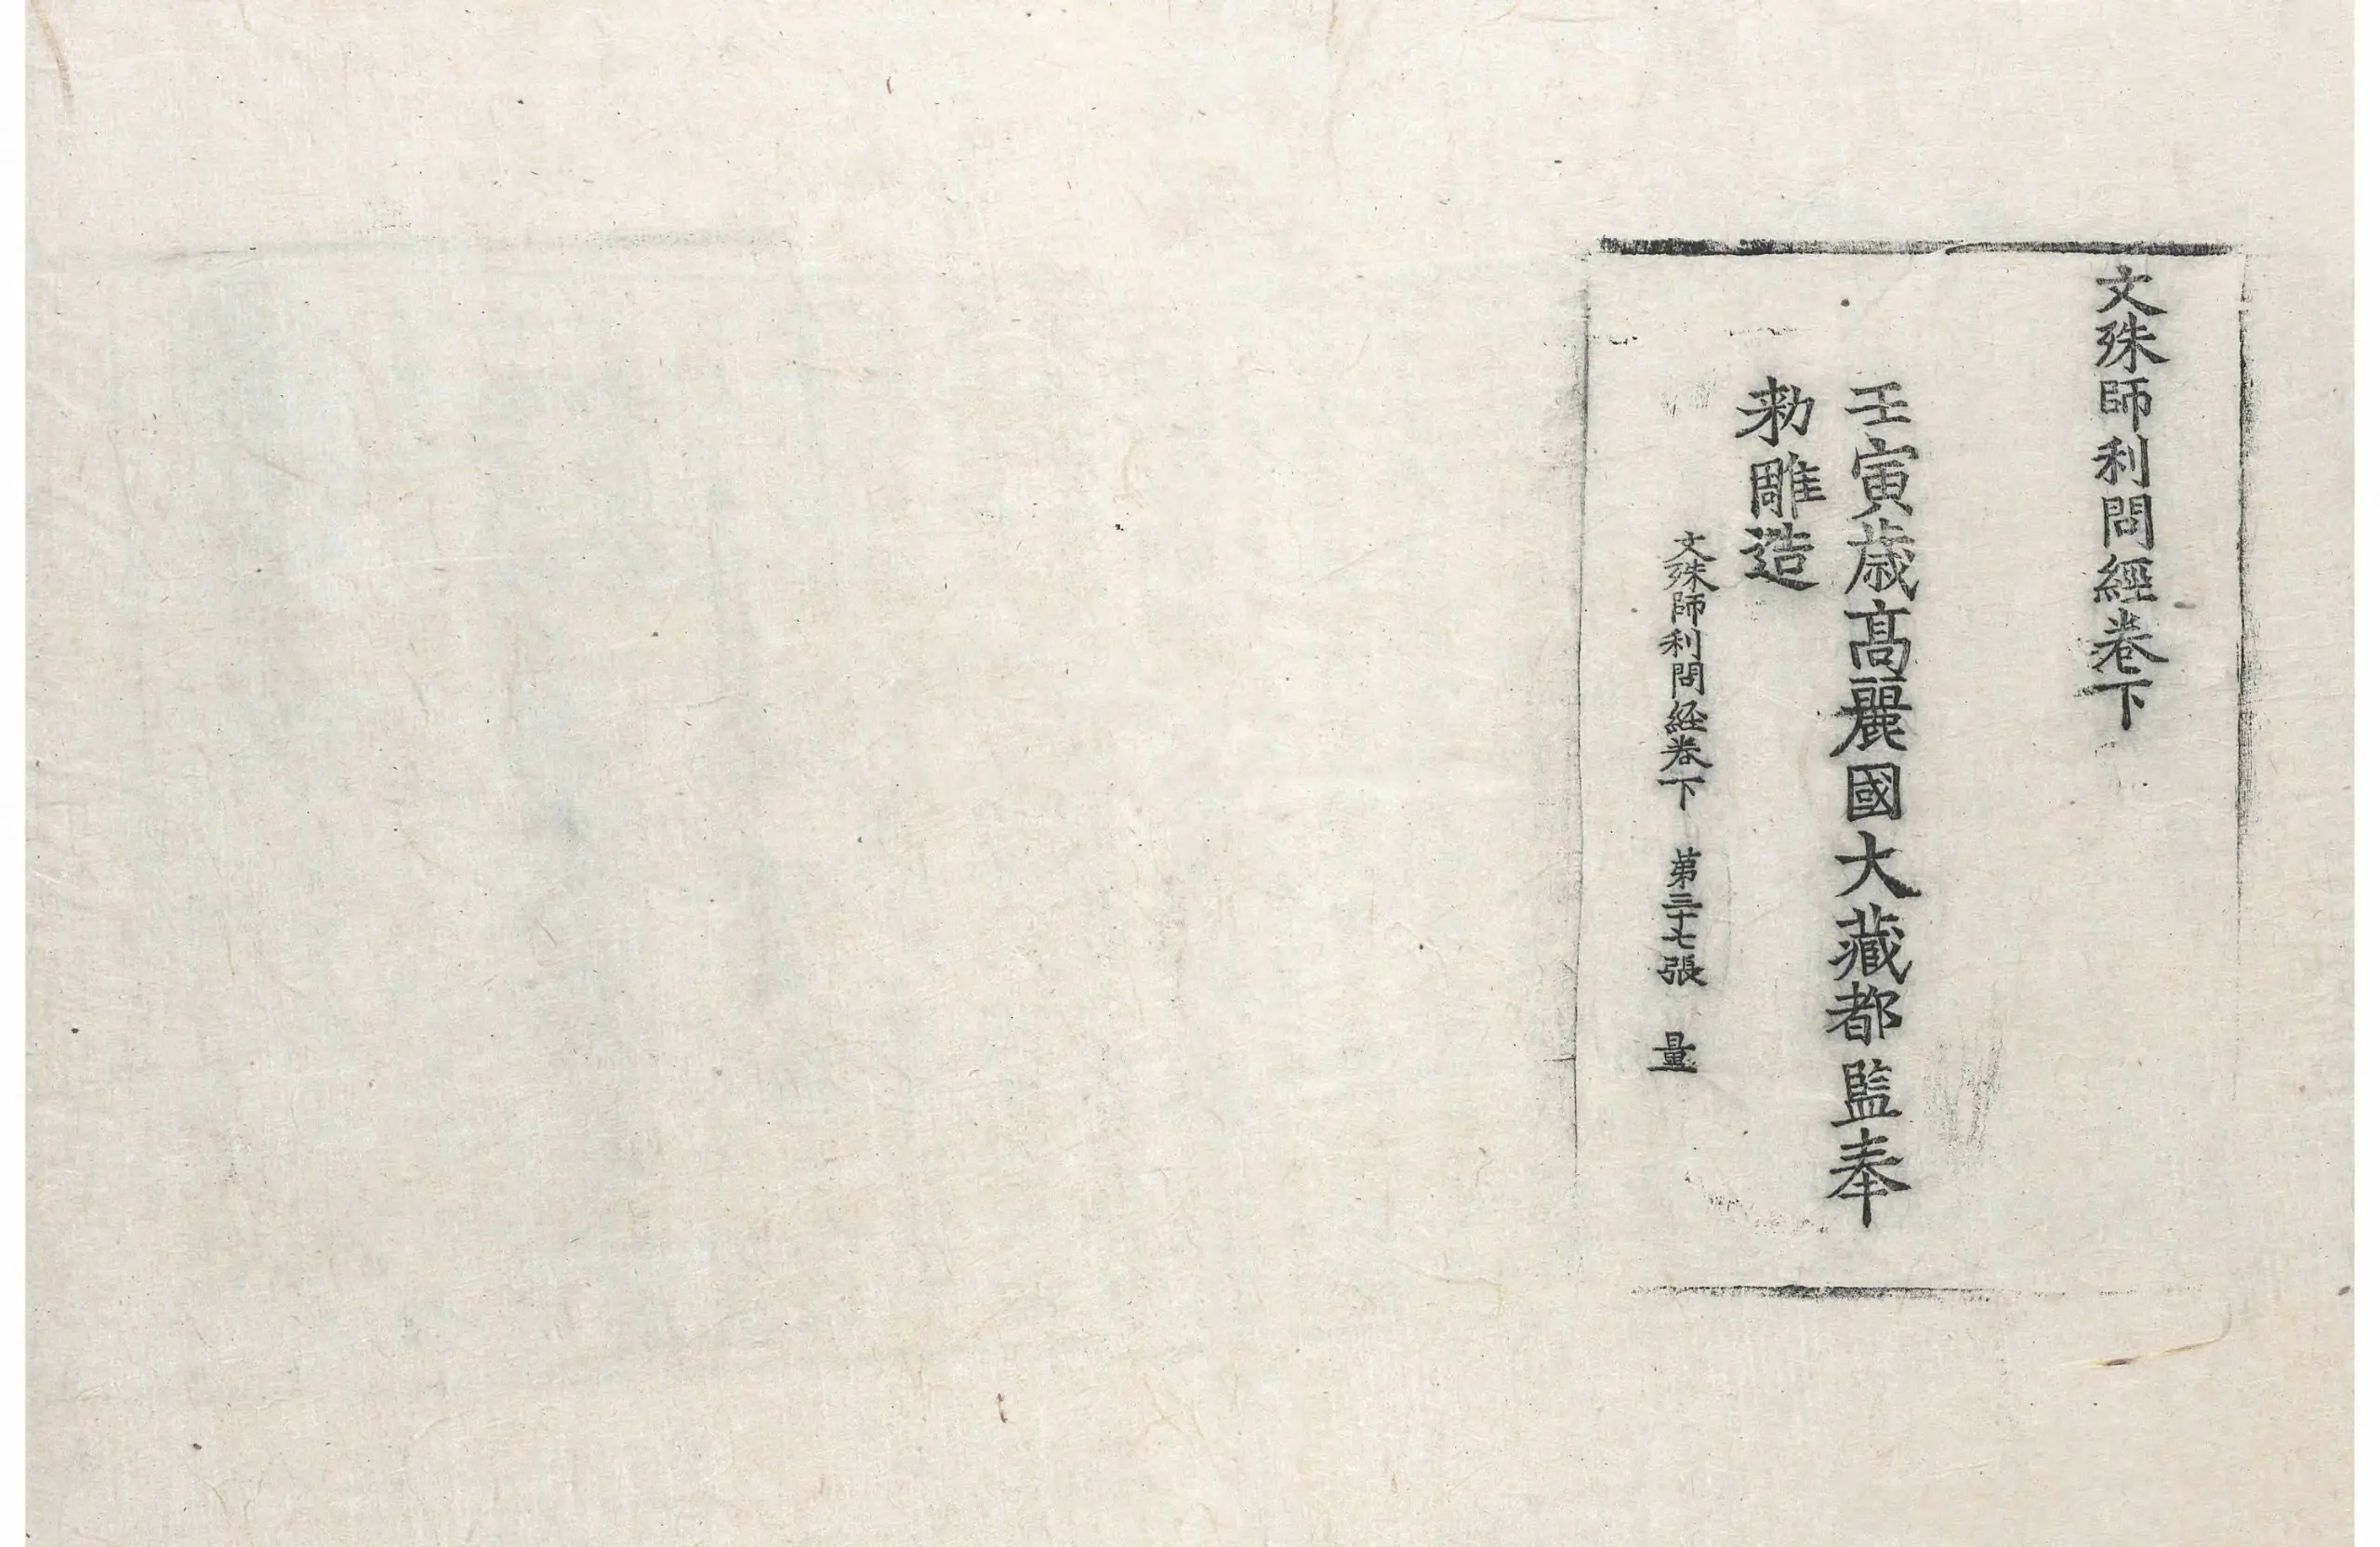 文殊師利問經卷下
壬寅歲高麗國大藏都監奉
勅雕造
文殊師利問経卷下 第三十七張 量